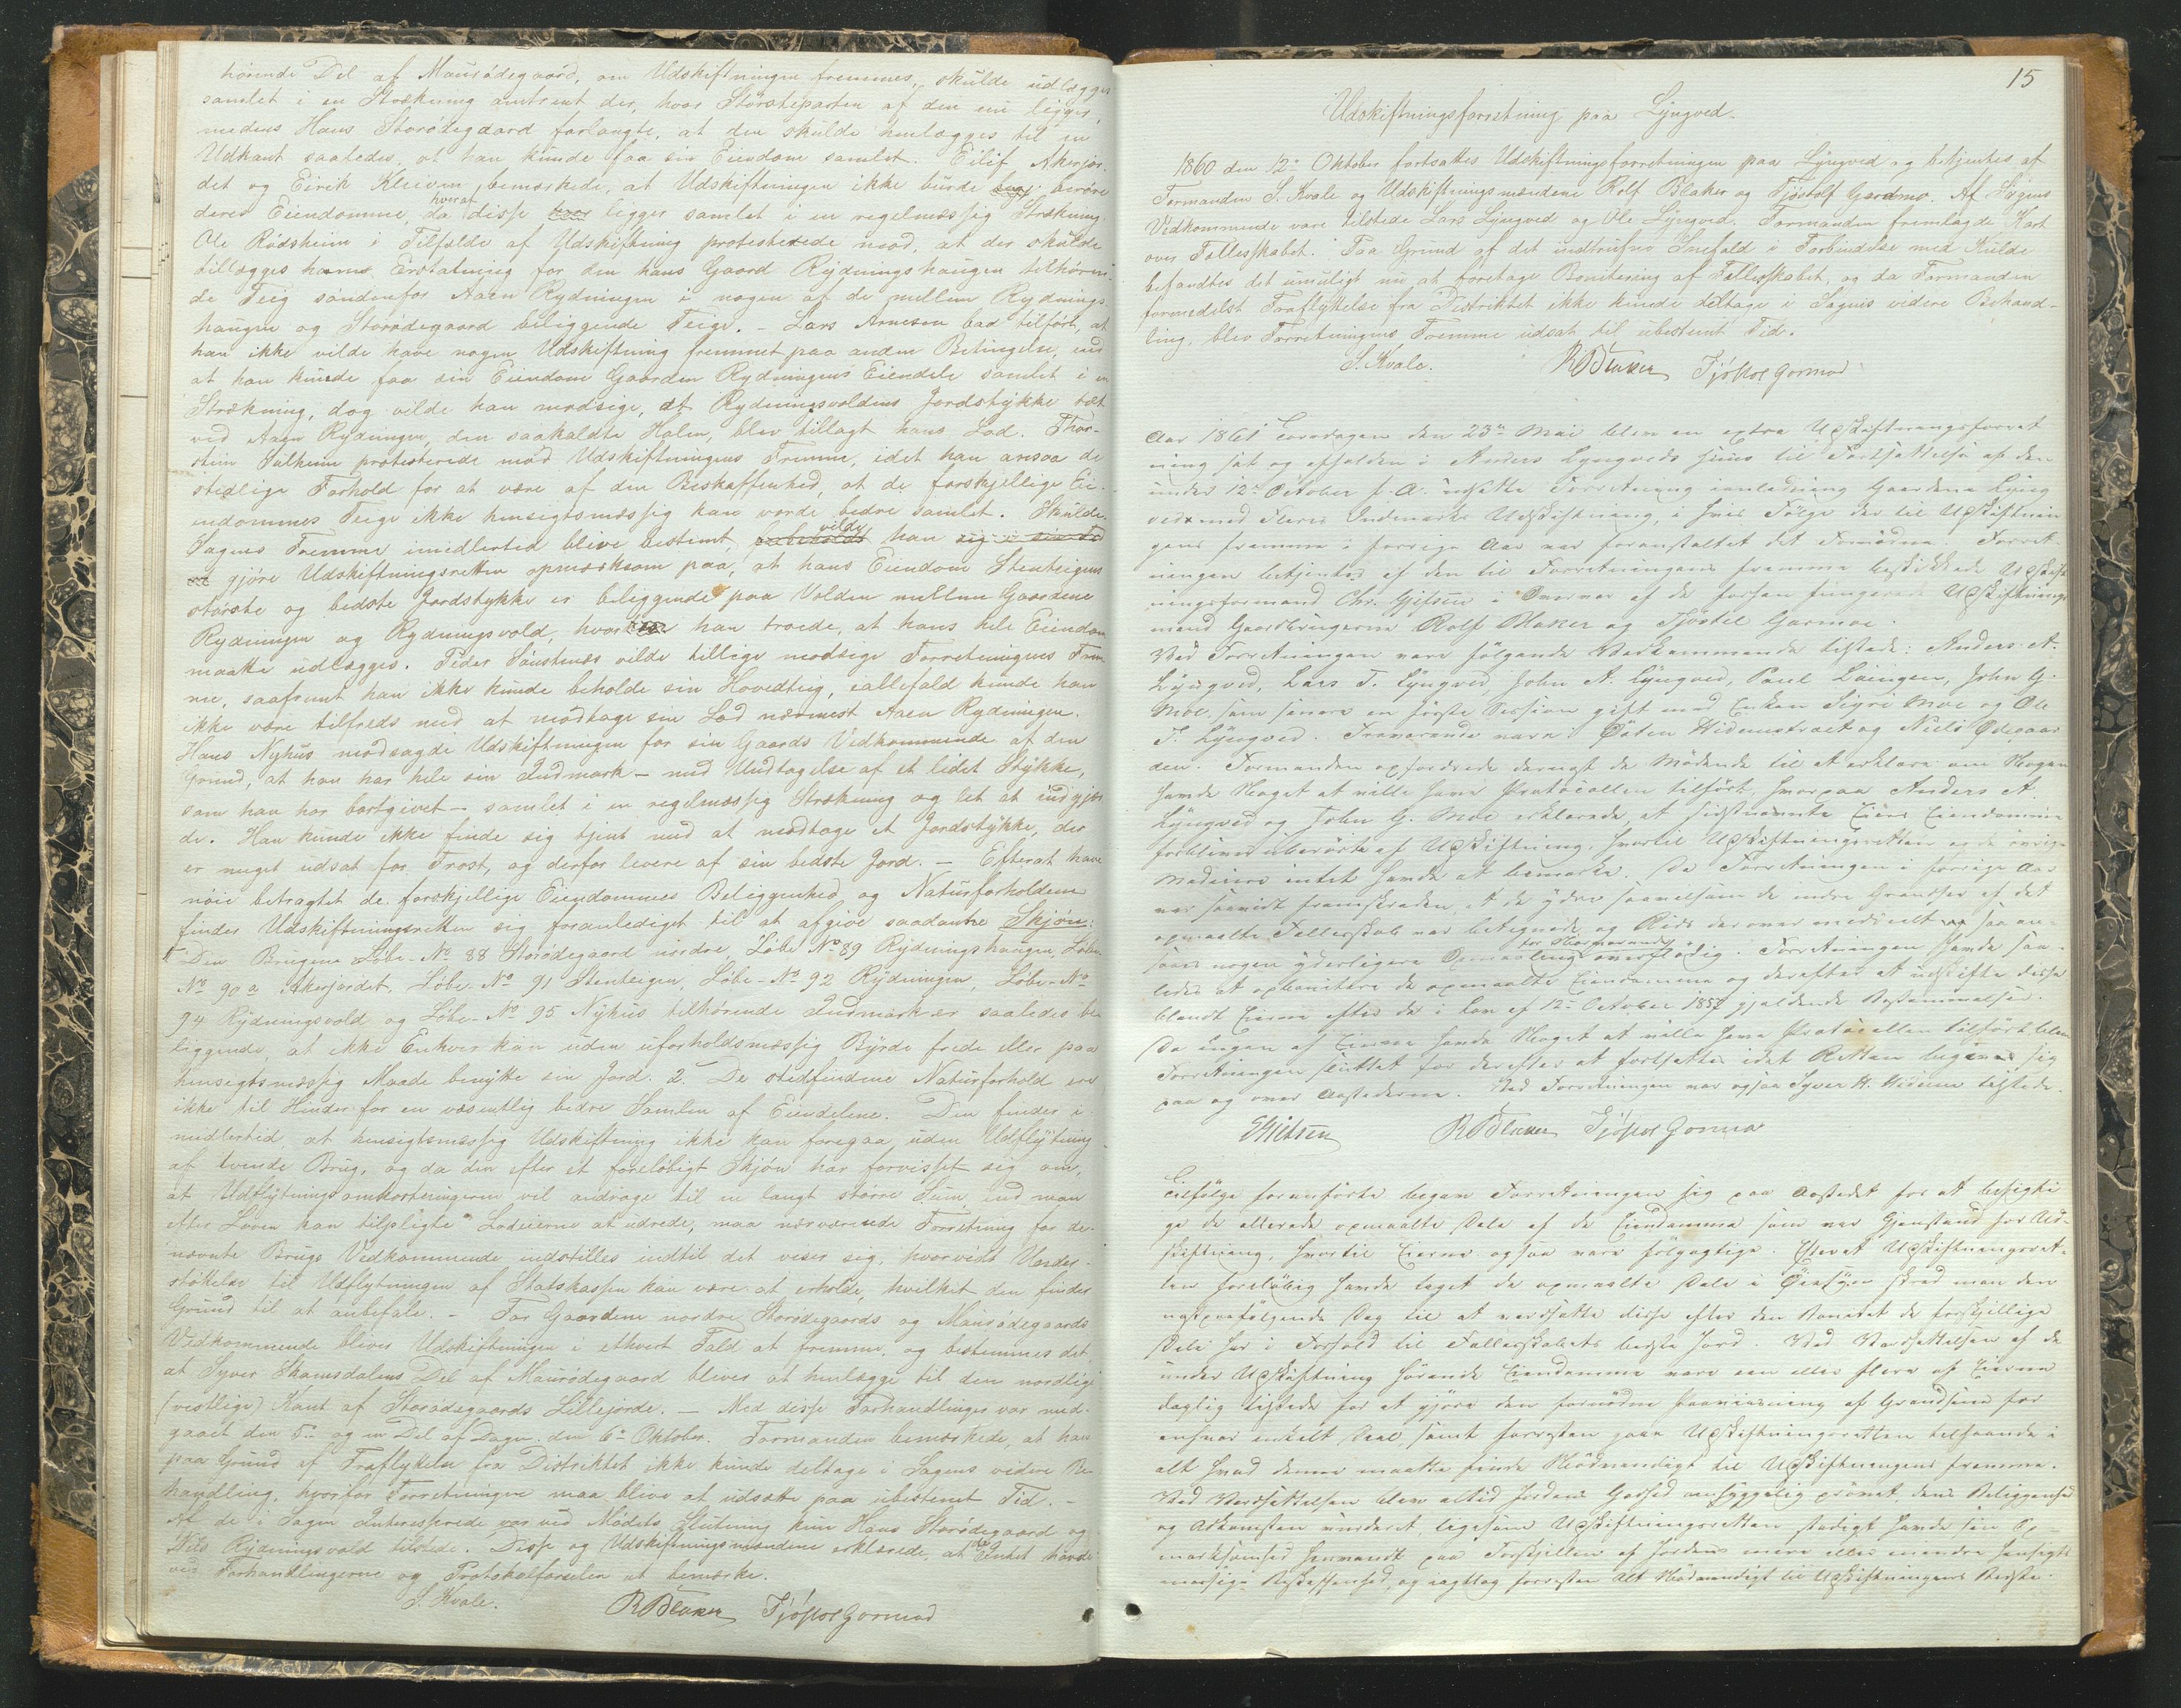 hørende Del af Mausødegaard, om Udskiftningen fremmes, skulde udlægges
samlet i en Strækning omtrent der, hvor Størsteparten af den nu ligger,
medens Hans Storødegaard forlangte, at den skulde henlægges til en
Udkant saaledes, at han kunde faa sin Eiendom samlet. Eilif Akerjor-
det og Eirik Kleiven bemærkede, at Udskiftningen ikke burde berøre
deres Eiendomme, da hvorat disse ligger samlet i en regelmæssig Strækning.
Ole Rødsheim i Tilfælde af Udskiftning protesterede mod, at der skulde
tillægges hans Erstatning for den hans Gaard Rydningshaugen tilhøren-
de Teig søndenfor Aaen Rydningen i nogen af de mellem Rydnings-
haugen og Storødegaard beliggende Teige. – Lars Arnesen bad tilført, at
han ikke vilde have nogen Udskiftning fremmet paa anden Betingelse, end
at han kunde faa sin Eiendom Gaarden Rydningens Eiendele samlet i en
Strækning, dog vilde han modsige, at Rydningsvoldens Jordstykke tæt
ved Aaen Rydningen, den saakaldte Holm, blev tillagt hans Lod. Thor-
stein Sulheim protesterede mod Udskiftningens Fremme, idet han ansaa de
stedlige Forhold for at være af den Beskaffenhed, at de forskjellige Ei-
endommes Teige ikke hensigtsmæssig kan vorde bedre samlet. Skulde
Sagens Fremme imidlertid blive bestemt, forbeholdt vilde han sig i sin Tid
at gjøre Udskiftningsretten opmærksom paa, at hans Eiendom Stenteigens
største og bedste Jordstykke er beliggende paa Volden mellem Gaardene
Rydningen og Rydningsvold, hvor han troede, at hans hele Eiendom
maatte udlægges. Peder Sønstenes vilde tillige modsige Forretningens Frem-
me, saafremt han ikke kunde beholde sin Hovedteig, iallefald kunde han
ikke være tilfreds med at modtage sin Lod nærmest Aaen Rydningen.
Hans Nyhus modsagde Udskiftningen for sin Gaards Vedkommende af den
Grund, at han har hele sin Indmark – med Undtagelse af et lidet Stykke,
som han har bortgivet – samlet i en regelmæssig Strækning og let at indgjer-
de. Han kunde ikke finde sig tjent med at modtage et Jordstykke, der
er meget udsat for Frost, og derfor levere af sin bedste Jord. – Efterat have
nøie betragtet de forskjellige Eiendommes Beliggenhed og Naturforholdene
finder Udskiftningsretten sig foranlediget til at afgive saadant Skjøn:
Den Brugene Løbe-No 88 Storødegaard nordre, Løbe No 89 Rydningshaugen, Løbe-
No 90a Akerjordet, Løbe-No 91 Stenteigen, Løbe-No 92 Rydningen, Løbe-No
94 Rydningsvold og Løbe-No 95 Nyhus tilhørende Indmark er saaledes be-
liggende, at ikke Enhver kan uden uforholdsmæssig Byrde frede eller paa
hensigtsmæssig Maade benytte sin Jord. 2. De stedfindene Naturforhold ere
ikke til Hinder for en væsentlig bedre Samlen af Eiendelene. Den finder i-
midlertid, at hensigtsmæssig Udskiftning ikke kan foregaa uden Udflytning
af tvende Brug, og da den efter et foreløbigt Skjøn har forvisset sig om,
at Udflytningsomkostningerne vil andrage til en langt større Sum, end man
efter Loven kan tilpligte Lodeierne at udrede, maa nærværende Forretning for de-
nævnte Brugs Vedkommende indstilles indtil det viser sig, hvorvidt Under-
støttelse til Udflytningen af Statskassen kan være at erholde, hvilket den finder
Grund til at anbefale. – For Gaardene nordre Storødegaards og Mausødegaards
Vedkommende bliver Udskiftningen i ethvert Fald at fremme, og bestemmes det,
at Syver Skamsdalens Del af Mausødegaard bliver at henlægge til den nordlige
(vestlige) Kant af Storødegaards Lillejorde. – Med disse Forhandlinger var med-
gaaet den 5te og en Del af Dagen den 6te Oktober. Formanden bemærkede, at han
paa Grund af Fraflyttelse fra Distriktet ikke kunde deltage i Sagens videre Be-
handling, hvorfor Forretningen maa blive at udsætte paa ubestemt Tid. –
Af de i Sagen Interesserede var ved Mødets Slutning kun Hans Storødegaard og
Nils Rydningsvold tilstede. Disse og Udskiftningsmændene erklærede, at de Intet havde
ved Forhandlingerne og Protokolførselen at bemærke.
S. Kvale. RBlaker Tjøstol Gormod
15
Udskiftningsforretning paa Lyngved.
1860 den 12te Oktober fortsattes Udskiftningsforretningen paa Lyngved og betjentes af
Formanden S. Kvale og Udskiftningsmændene Rolf Blaker og Tjøstolf Garmo. Af Sagens
Vedkommende vare tilstede Lars Lyngved og Ole Lyngved. Formanden fremlagde Kart
over Fællesskabet. Paa Grund af det indtrufne Snefald i Forbindelse med Kulde
befandtes det umuligt nu at foretage Bonitering af Fællesskabet, og da Formanden
formedelst Fraflyttelse fra Distriktet ikke kunde deltage i Sagens videre Behand-
ling, blev Forretningens Fremme udsat til ubestemt Tid.
S. Kvale. RBlaker Tjøstol Gormod
Aar 1861 Torsdagen den 23de Mai blev en extra Udskiftningsforret
ning sat og afholden i Anders Lyngveds Huus til Fortsættelse af den
under 12te October f. A. udsatte Forretning i anledning Gaardene Lyng
ved med Fleres Indmarks Udskiftning, i hvis Følge der til Udskiftnin
gens fremme i forrige Aar var foranstaltet det Fornødne. Forret-
ningen betjentes af den til Forretningens fremme beskikkede Udskift
ningsformand Chr. Gjetsen i Overvær af de forhen fungerende Udskiftnings-
mænd Gaardbrugerne Rolf Blaker og Tjøstel Garmoe.
Ved Forretningen vare følgende Vedkommende tilstede: Anders A.
Lyngved, Lars T. Lyngved, John A. Lyngved, Poul Løingen, John G.
Moe, som senere en første Session gift med Enken Sigri Moe og Ole
T. Lyngved. Fraværende vare: Østen Widemstræet og Niels Ødegaar
den. Formanden opfordrede dernæst de Mødende til at erklære om Nogen
havde Noget at ville have Protocollen tilført, hvorpaa Anders A.
Lyngved og John G. Moe erklærede, at sidstnævnte Eiers Eiendomme
forbliver uberørte af Udskiftning, hvortil Udskiftningsretten og de øvrige
Medeiere intet havde at bemærke. Da Forretningen i forrige Aar
var saavidt fremskreden, at de ydre saavelsom de indre Grændser af det
opmaalte Fællesskab var betegnede og Rids derover meddeelt saa an-
saaes nogen yderligere Opmaaling for Nærværende overflødig. Forretningen havde saa-
ledes at opbonitere de opmaalte Eiendomme og derefter at udskifte disse
blandt Eierne efter de i Lov af 12te October 1857 gjældende Bestemmelser.
Da ingen af Eierne havde Noget at ville have Protocollen tilført blev
Forretningen sluttet for derefter at fortsættes idet Retten begiver sig
paa og over Aastederne. Ved Forretningen var ogsaa Syver H. Widem tilstede.
CGjetsen RBlaker Tjøstol Gormo
Tilfølge foranførte begav Forretningen sig paa Aastedet for at besigti
ge de allerede opmaalte Dele af de Eiendomme som var Gjenstand for Ud-
skiftning, hvortil Eierne ogsaa vare følgagtige. Efterat Udskiftningsret-
ten foreløbig havde taget de opmaalte Dele i Øiesyn skred man den
næstpaafølgende Dag til at værdsætte disse efter den Bonitet de forskjellige
Dele har i Forhold til Fællesskabets bedste Jord. Ved Værdsættelsen af de
under Udskiftning hørende Eiendomme vare een eller flere af Eierne
daglig tilstede for at gjøre den fornødne Paaviisning af Grændserne for
enhver enkelt Deel, samt forresten gaae Udskiftningsretten tilhaande i
alt hvad denne maatte finde Nødvendigt til Udskiftningens fremme.
Ved Værdsættelsen blev altid Jordens Godhed omhyggelig prøvet, dens Beliggenhed
og Adkomsten vurderet, ligesom Udskiftningsretten stadigt havde sin Op-
mærksomhed henvendt paa Forskjellen af Jordens mere eller mindre hensigts
mæssige Beskaffenhed, og iagttog forresten Alt Nødvendigt til Udskiftningens Bedste.